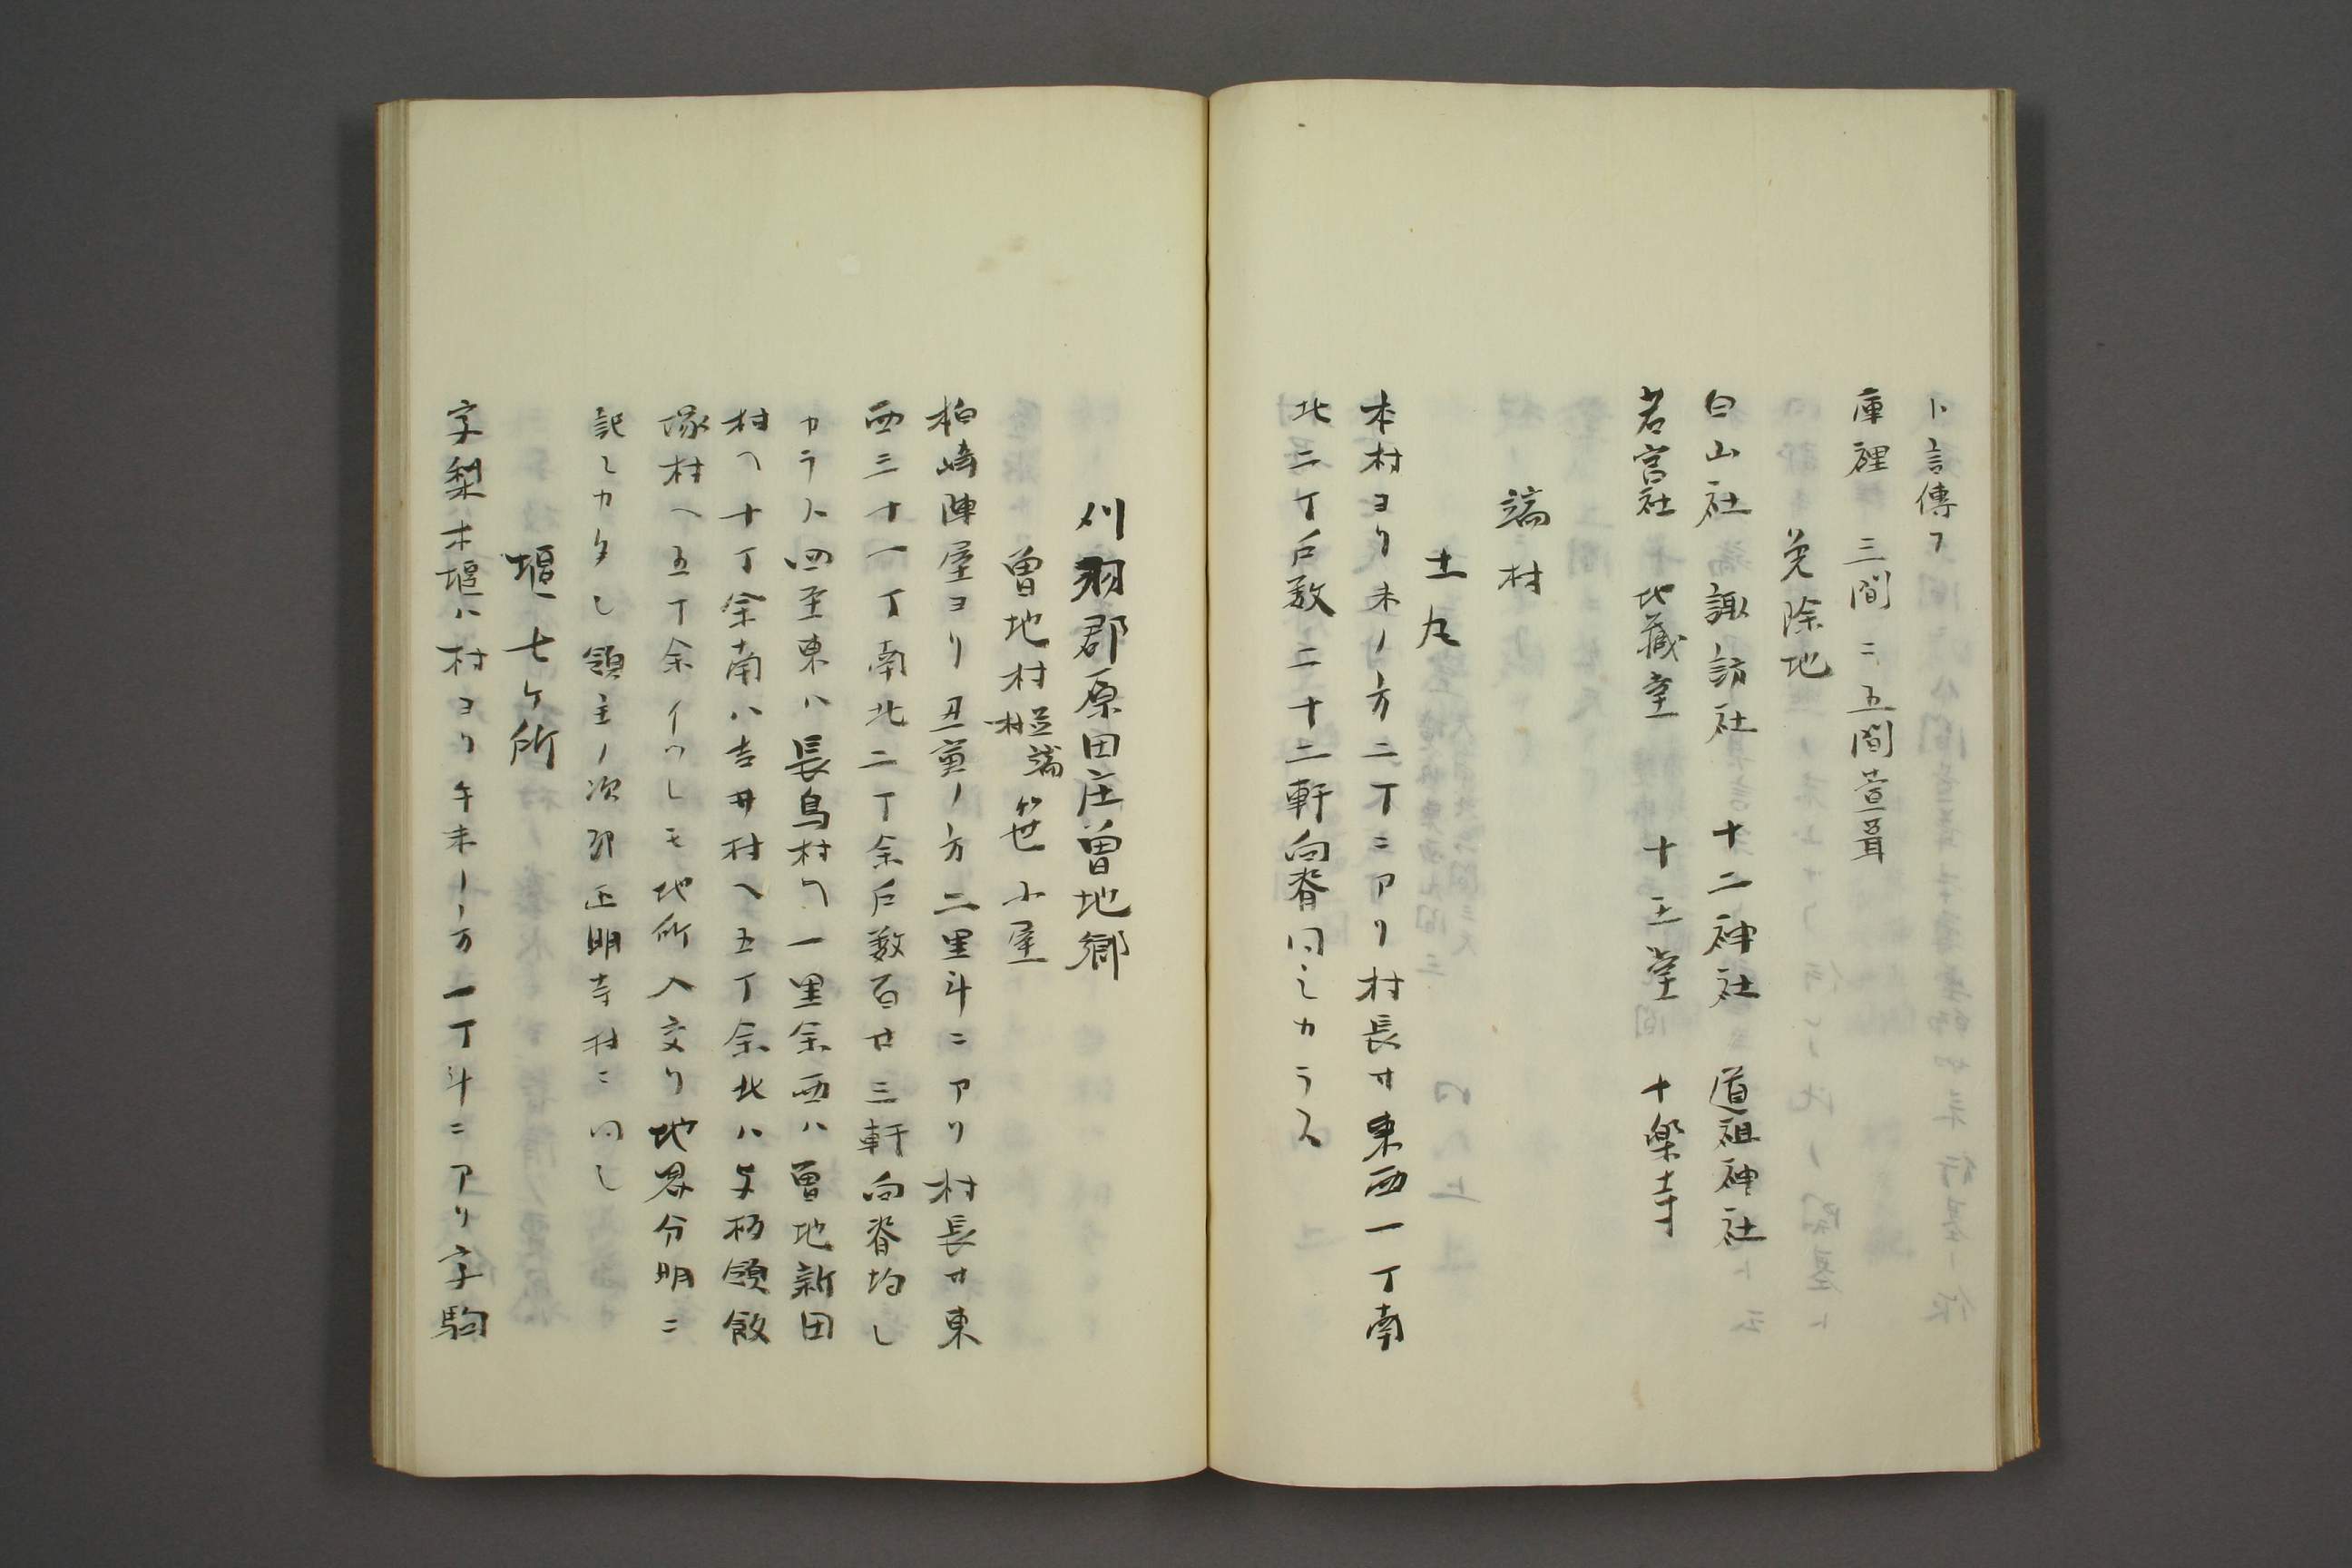 ト言傳フ
庫裡 三間ニ五間萱葺
免除地
白山社 諏訪社 十二神社 道祖神社
若宮社 地藏堂 十王堂 十楽寺
端村
土尢
本村ヨリ未ノ方二丁ニアリ村長サ東西一丁南
北二丁戸数二十二軒向背同シカラス
刈羽郡原田庄曽地郷
曽地村並端村笹小屋
柏崎陣屋ヨリ丑寅ノ方二里斗ニアリ村長サ東
西三十一丁南北二丁余戸数百廿三軒向背均シ
カラス四至東ハ長鳥村ヘ一里余西ハ曽地新田
村ヘ十丁余南ハ吉井村ヘ五丁余北ハ与板領飯
塚村ヘ五丁余イツレモ地所入交リ地界分明ニ
記シカタシ領主ノ次第正明寺村ニ同シ
堰七ケ所
字梨木堰ハ村ヨリ午未ノ方一丁斗ニアリ字駒